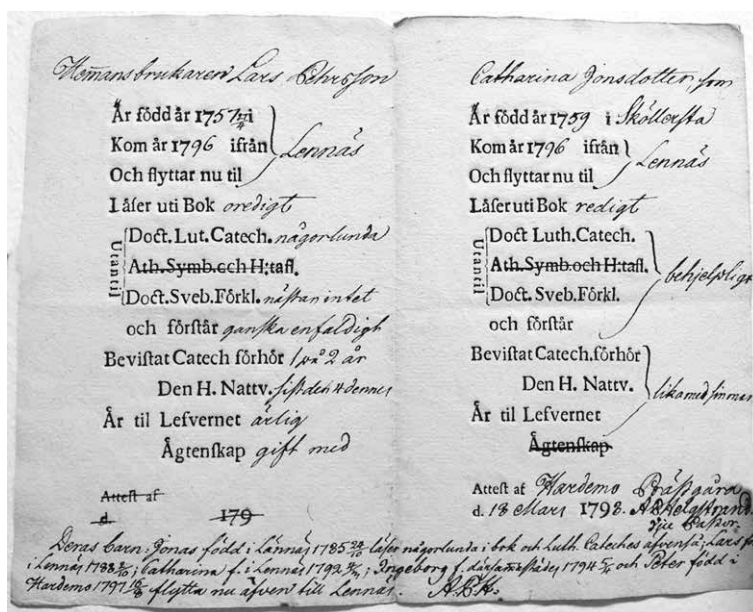 Hem̄ansbrukaren Lars Pehrsson
Är född år 1757 i
Kom år 1796 ifrån Lennäs
Och flyttar nu til
Låser uti Bok oredigt
Utantil
Doct. Lut. Catech. någorlunda
Ath. Symb. och H:tafl.
Doct. Sveb. Förkl. nästan intet
och förstår ganska enfaldigt
Bevistat Catech förhör 1 på 2 år
Den H. Nattv. sist den 4 dennes
Är til Lefvernet ärlig
Ägtenskap gift med
Attest af
d. 179
Catharina Jonsdotter, som
Är född år 1759 i Sköllersta
Kom år 1796 ifrån Lennäs
Och flyttar nu til
Läser uti Bok redigt
Utantil
Doct Luth. Catech.
Ath. Symb. och H:tafl. behjelpligt
Doct. Sveb. Förkl.
och förstår
Bevistat Catech. förhör
Den H. Nattv. lika med sin man
Är til Lefvernet
Ägtenskap
Attest af Hardemo Prästgård
d. 18 Mars 1798.
Deras barn: Jonas född i Lännäs 1785 24/10 läser någorlunda i bok och Luth. Cateches äfvenså; Lars
i Lennäs 1788; Catharina f. i Lennäs 1792; Ingeborg f. därsammastädes 1794 och Peter född i
Hardemo 1797 flytta nu äfven till Lennäs.